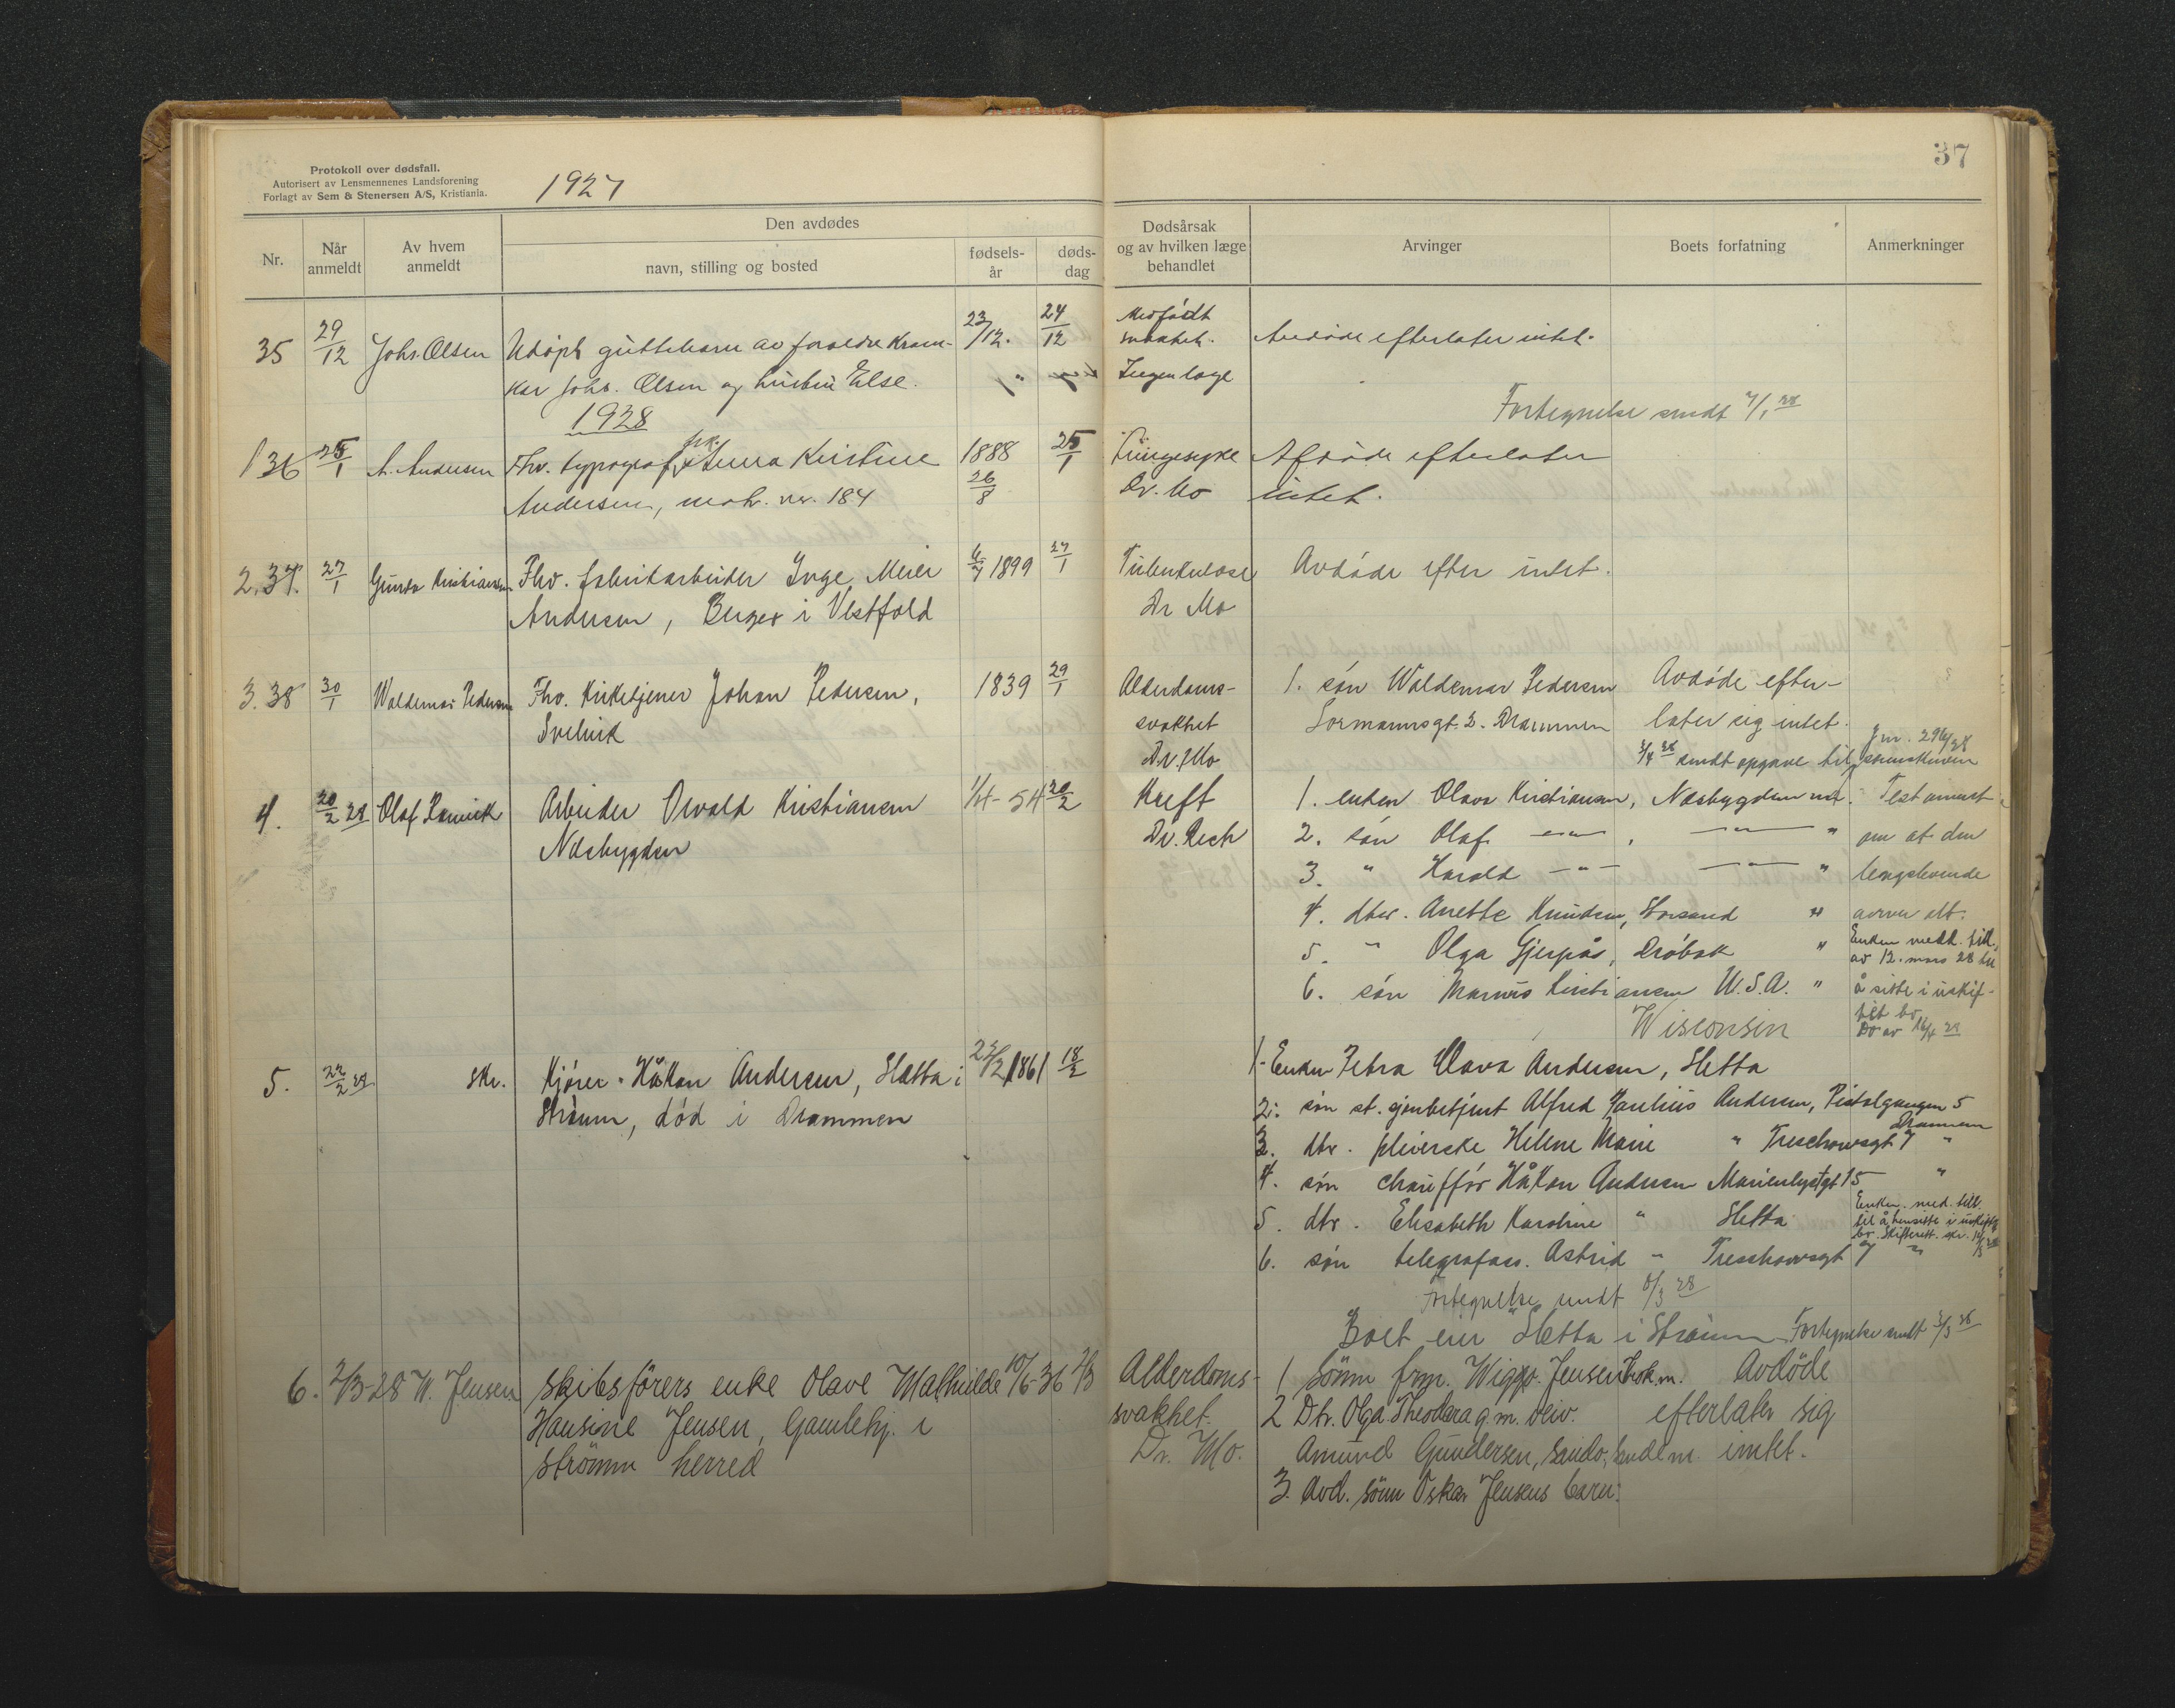 Protokoll over dødsfall.
Autorisert av Lensmennenes Landsforening
Forlagt av Sem & Stenersen A/S, Kristiania.
1927
37
Nr.
Når anmeldt
Av hvem anmeldt
Den avdødes
navn, stilling og bosted
fødsels-år
døds-dag
Dødsårsak og av hvilken læge behandlet
Arvinger
Boets forfatning
Anmerkninger
35 29/12 Johs. Olsen Udøpt guttebarn av foreldre Kram- 23/12. 24/12 Medfødt svakhet. Avdøde efterlater intet.
kar Johs. Olsen og hustru Else. " Ingen læge
Fortegnelse sendt 7/1 28
1928
1 36 25/1 A. Andersen Fhv. typograf frk. Anna Kristine 1888 25/1 Tungesyke Afdøde efterlater
Andersen, matr. nr. 184 26/8 Dr. Mo intet.
2. 37. 27/1 Gunda Kristiansen Fhv. fabrikarbeider Inge Meier 6/7 1899 27/1 Tuberkulose Avdøde efter intet.
Andersen, Berger i Vestfold Dr Mo
3. 38 30/1 Waldemar Pedersen Fhv. Kirketjener Johan Pedersen, 1839 29/1 Alderdoms- 1. søn Waldemar Pedersen Avdøde efter-
Svelvik svakhet Sormannsgt. 2. Drammen later sig intet.
Dr. Mo 3/4 28 sendt opgave til sorenskriveren J nr. 296/28
4. 20/2 28 Olaf Arbeider Osvald Kristiansen 1/4-54 20/2 Kreft 1. enken Olava Kristiansen, Nesbygden m. Testament
Nesbygden Dr. Rech 2. søn Olaf —"— —"— " om at den
3. " Harald —"— —"— " lengstlevende
4. dtr. Anette Knudsen, Storsand " arver alt.
5. " Olga Gjerpås, Drøbak " Enken medd. till.
av 12. mars 28 til
6. søn Marius Kristiansen U.S.A. " å sitte i uskif-
tet bo
Wisconsin Do av 16/4 28
5. 22/2 28 skr. Kjører Håkon Andersen, Sletta i 22/2 1861 18/2 1. Enken Petra Olava Andersen, Sletta
Strømm, død i Drammen 2. søn st. Alfred Paulius Andersen, Pistolgangen 5
Drammen
3. dtr. pleierske Helene Marie " Treschowsgt 7 "
4. søn chauffør Håkon Andersen Marienlystgt 15 "
5. dtr. Elisabeth Karoline " Sletta Enken med. till.
til å hensitte i uskiftet
bo. Skifterett. skr. 14/3 28
6. søn telegrafass. Astrid " Treschowsgt 7 "
Fortegnelse sendt 8/3 28
Boet eier Sletta i Strømm Fortegnelse sendt 3/3 28
6. 2/3-28 W. Jensen Skibsförers enke Olave Mathilde 10/6-36 2/3 Alderdoms- 1 Sönn frm. Wiggo Jensen Hok.m. Avdöde
Hansine Jensen, Gamlehj. i svakhet. 2 Dtr. Olga Theodora g.m. veiv. efterlater sig
Strömm herred Dr. Mo. Amund Gundersen, Sando, Sande m intet.
3. Avd. sönn Oskar Jensens barn.